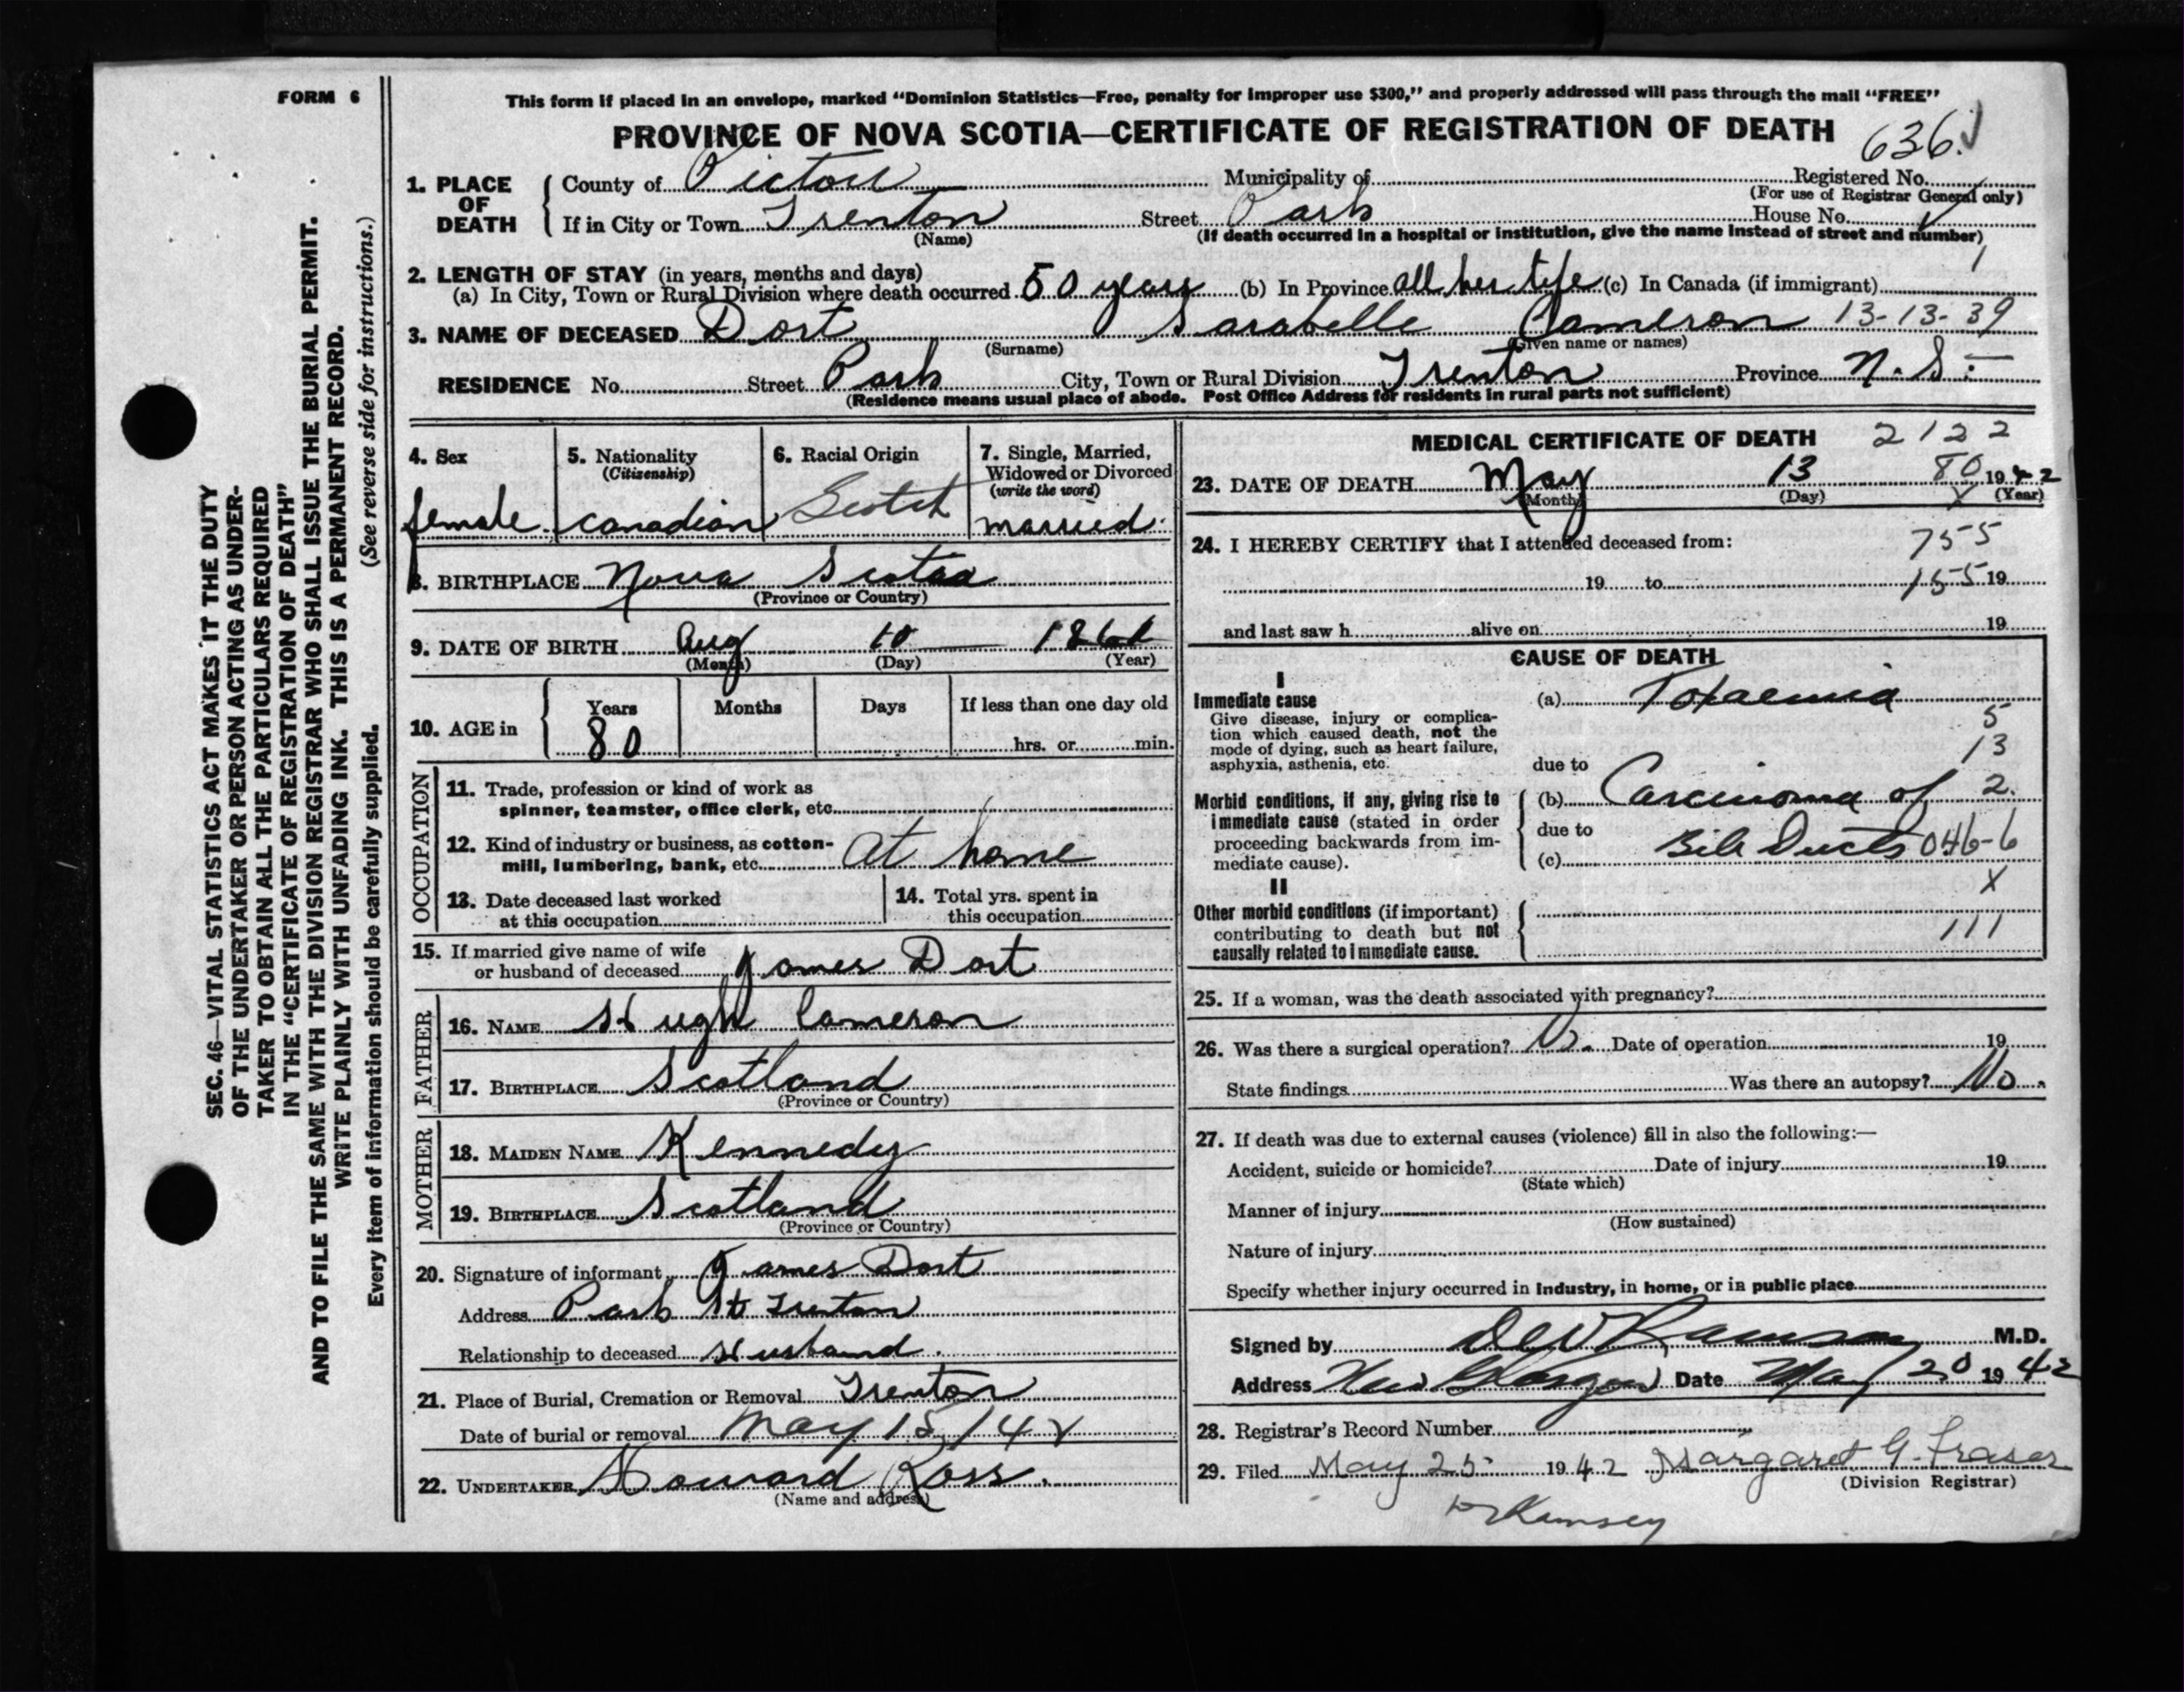 FORM 6
This form if placed in an envelope, marked "Dominion Statistics—Free, penalty for improper use $300," and properly addressed will pass through the mail "FREE"
PROVINCE OF NOVA SCOTIA—CERTIFICATE OF REGISTRATION OF DEATH
636.
1. PLACE OF DEATH County of Pictou Municipality of Registered No.
(For use of Registrar General only)
If in City or Town Trenton Street Park House No.
(Name) (If death occurred in a hospital or institution, give the name instead of street and number)
2. LENGTH OF STAY (in years, months and days)
(a) In City, Town or Rural Division where death occurred 50 years (b) In Province all her life (c) In Canada (if immigrant)
3. NAME OF DECEASED Dort Sarabelle Cameron 13-13-39
(Surname) (Given name or names)
RESIDENCE No. Street Park City, Town or Rural Division Trenton Province N. S.
(Residence means usual place of abode. Post Office Address for residents in rural parts not sufficient)
4. Sex 5. Nationality 6. Racial Origin 7. Single, Married,
(Citizenship) Widowed or Divorced
(write the word)
female canadian Scotch married.
8. BIRTHPLACE Nova Scotia
(Province or Country)
9. DATE OF BIRTH Aug 10 1861
(Month) (Day) (Year)
10. AGE in Years Months Days If less than one day old
80 hrs. or min.
OCCUPATION
11. Trade, profession or kind of work as
spinner, teamster, office clerk, etc.
12. Kind of industry or business, as cotton-
mill, lumbering, bank, etc. At home
13. Date deceased last worked 14. Total yrs. spent in
at this occupation this occupation
15. If married give name of wife
or husband of deceased James Dort
FATHER
16. NAME Hugh Cameron
17. BIRTHPLACE Scotland
(Province or Country)
MOTHER
18. MAIDEN NAME Kennedy
19. BIRTHPLACE Scotland
(Province or Country)
20. Signature of informant James Dort
Address Park St Trenton
Relationship to deceased Husband.
21. Place of Burial, Cremation or Removal Trenton
Date of burial or removal May 15/42
22. UNDERTAKER Howard Ross.
(Name and address)
MEDICAL CERTIFICATE OF DEATH 2122
23. DATE OF DEATH May 13 80 1942
(Month) (Day) (Year)
24. I HEREBY CERTIFY that I attended deceased from: 755
19 to 155 19
and last saw h alive on 19
CAUSE OF DEATH
I
Immediate cause (a) Toxaemia
Give disease, injury or complica-
tion which caused death, not the
mode of dying, such as heart failure,
asphyxia, asthenia, etc. due to
5
13
Morbid conditions, if any, giving rise to (b) Carcinoma of 2.
immediate cause (stated in order due to
proceeding backwards from im-
mediate cause). (c) Bile Ducts 046-6
II X
Other morbid conditions (if important)
contributing to death but not 111
causally related to immediate cause.
25. If a woman, was the death associated with pregnancy?
26. Was there a surgical operation? No. Date of operation 19
State findings Was there an autopsy? No.
27. If death was due to external causes (violence) fill in also the following:—
Accident, suicide or homicide? Date of injury 19
(State which)
Manner of injury
(How sustained)
Nature of injury
Specify whether injury occurred in industry, in home, or in public place
Signed by Ramsay M.D.
Address New Glasgow Date May 20 1942
28. Registrar's Record Number
29. Filed May 25 1942 Margaret G. Fraser
(Division Registrar)
Dr Ramsey
SEC. 46—VITAL STATISTICS ACT MAKES IT THE DUTY
OF THE UNDERTAKER OR PERSON ACTING AS UNDER-
TAKER TO OBTAIN ALL THE PARTICULARS REQUIRED
IN THE "CERTIFICATE OF REGISTRATION OF DEATH"
AND TO FILE THE SAME WITH THE DIVISION REGISTRAR WHO SHALL ISSUE THE BURIAL PERMIT.
WRITE PLAINLY WITH UNFADING INK. THIS IS A PERMANENT RECORD.
Every item of information should be carefully supplied. (See reverse side for instructions.)